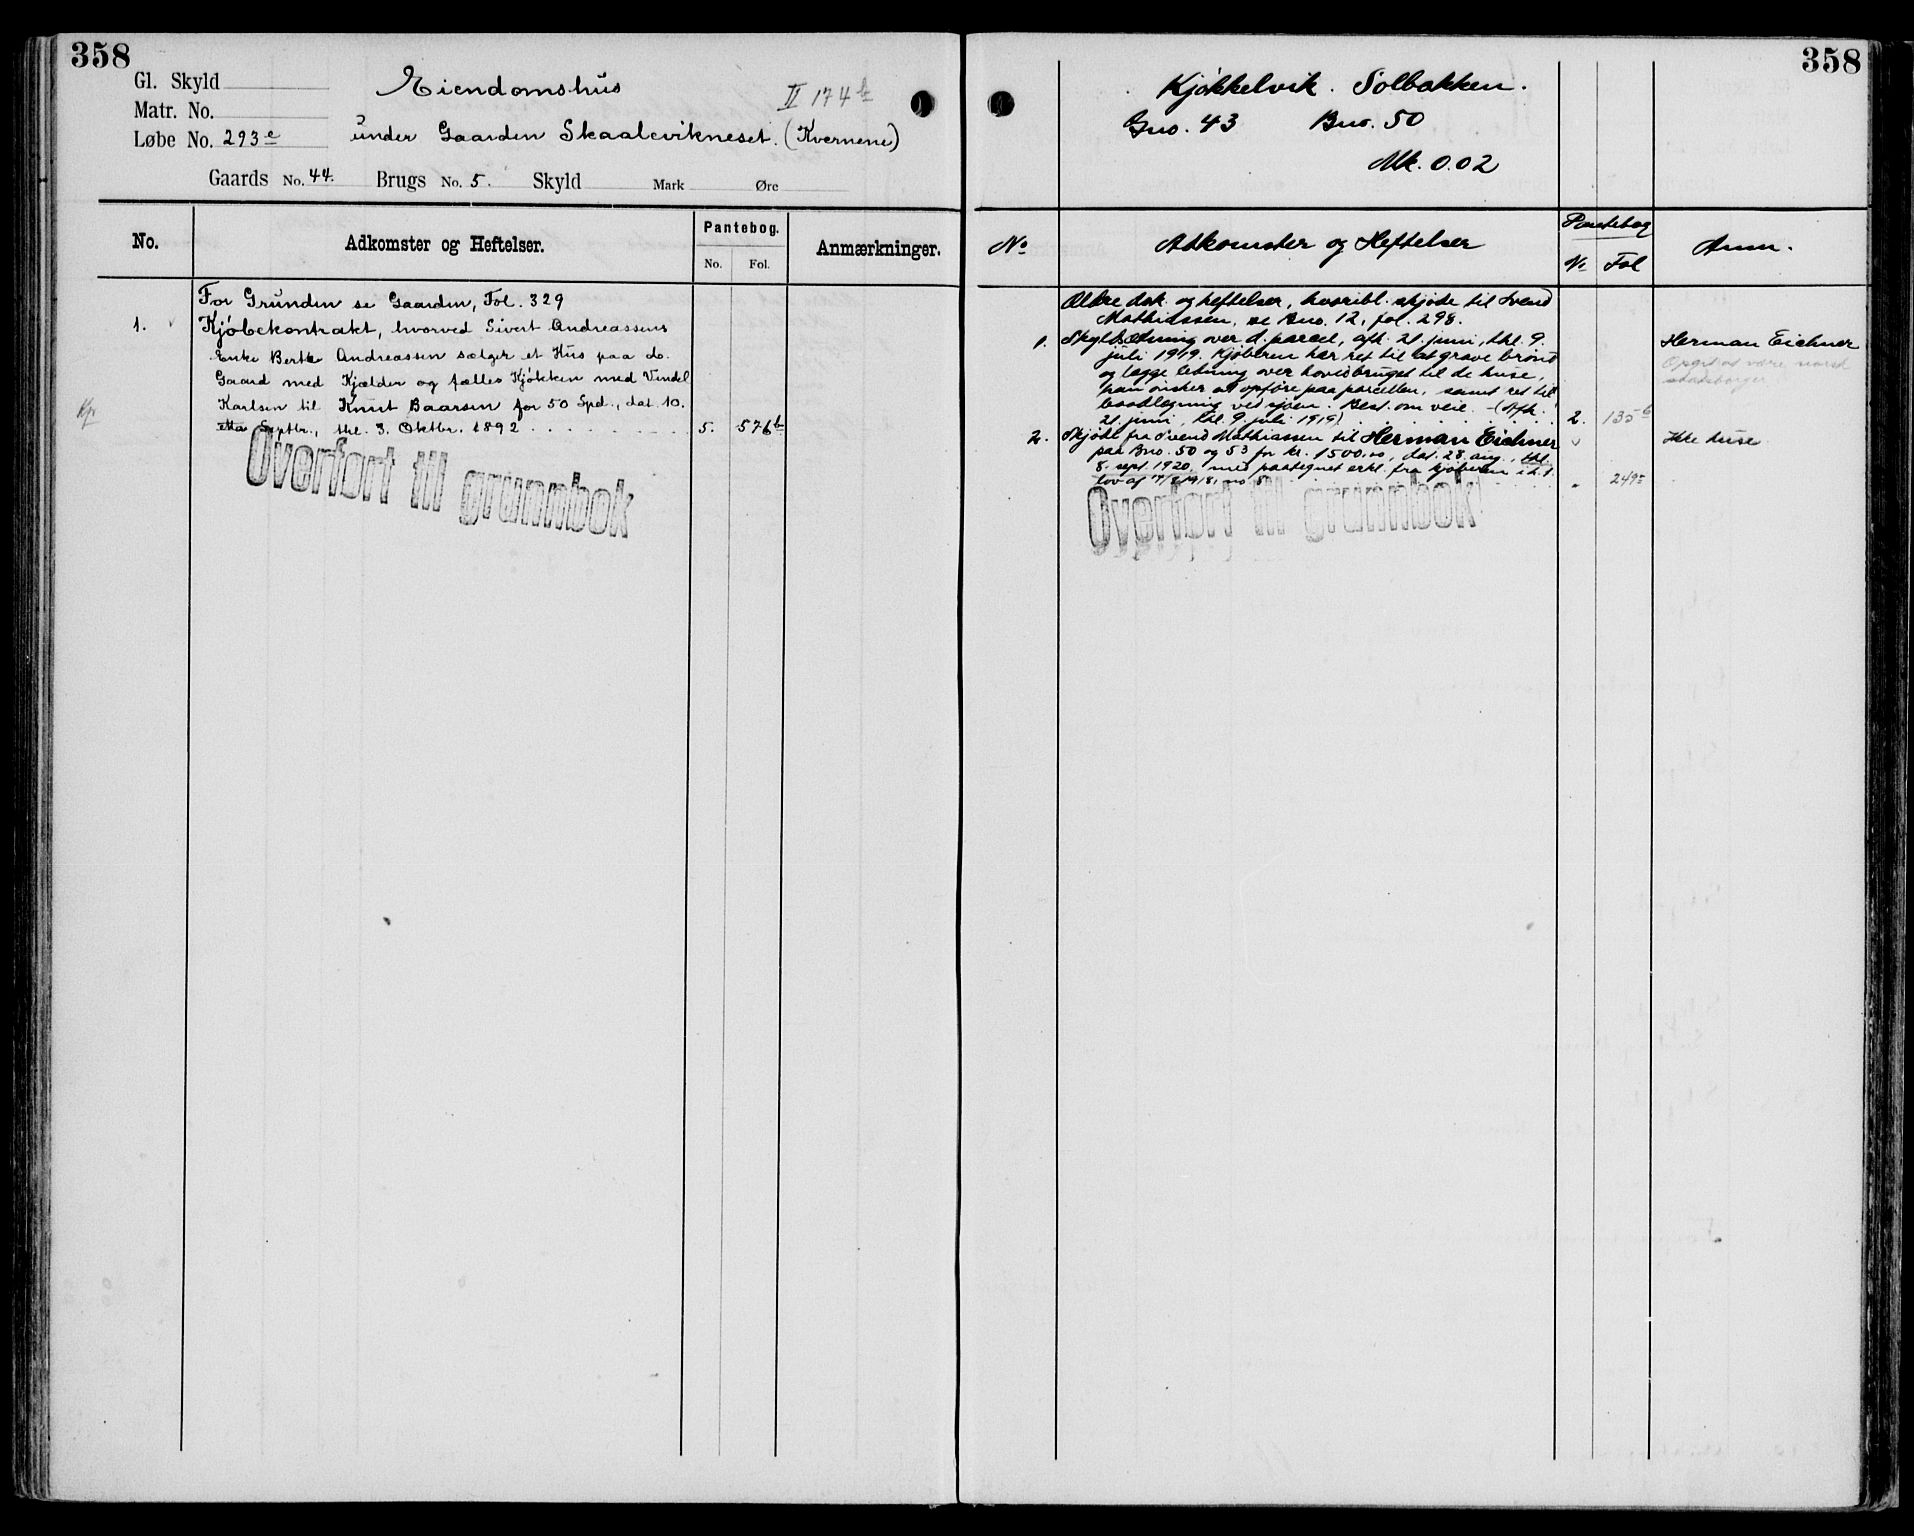 358
Gl. Skyld
Matr. No.
Løbe No. 293e
Eiendomshus
II 174b
under Gaarden Skaalevikneset. (Kvernene)
Gaards No. 44. Brugs No. 5. Skyld Mark Øre
No. Adkomster og Heftelser. Pantebog. No. Fol. Anmærkninger.
For Grunden se Gaarden, Fol. 329
1. Kjøbekontrakt, hvorved Sivert Andreassens
Enke Berthe Andreassen sælger et Hus paa do.
Gaard med Kjælder og fælles Kjøkken med Vindel
Karlsen til Knut Baarsen for 50 Spd., dat. 10.
Septbr., thl. 3. Oktbr. 1892 5. 576b
Overført til grunnbok
358
Kjøkkelvik. Solbakken.
Gno. 43 Bno. 50
Mk. 0.02
No Adkomster og Heftelser Pantebog No Fol Anm.
Ældre dok. og heftelser, hvoribl. skjøde til Svend
Mathiassen, se Bno. 12, fol. 298.
1. Skyldsætning over d. parcel, afh. 21. juni, thl. 9.
juli 1919. Kjøberen har ret til at grave brønd
og lægge ledning over hovedbruget til de huse,
han ønsker at opføre paa parcellen, samt ret til
baadlægning ved sjøen. Best. om veie. (Afh.
21. juni, thl. 9. juli 1919) 2. 135b
Herman Eichner
Opgit at være norsk
statsborger
2. Skjøde fra Svend Mathiassen til Herman Eichner
paa Bno. 50 og 53 for kr. 1500.00, dat. 28. aug., thl.
8. sept. 1920, med paategnet erkl. fra kjøberen i h. t.
lov af 1918, no 8. 249
Ikke huse
Overført til grunnbok